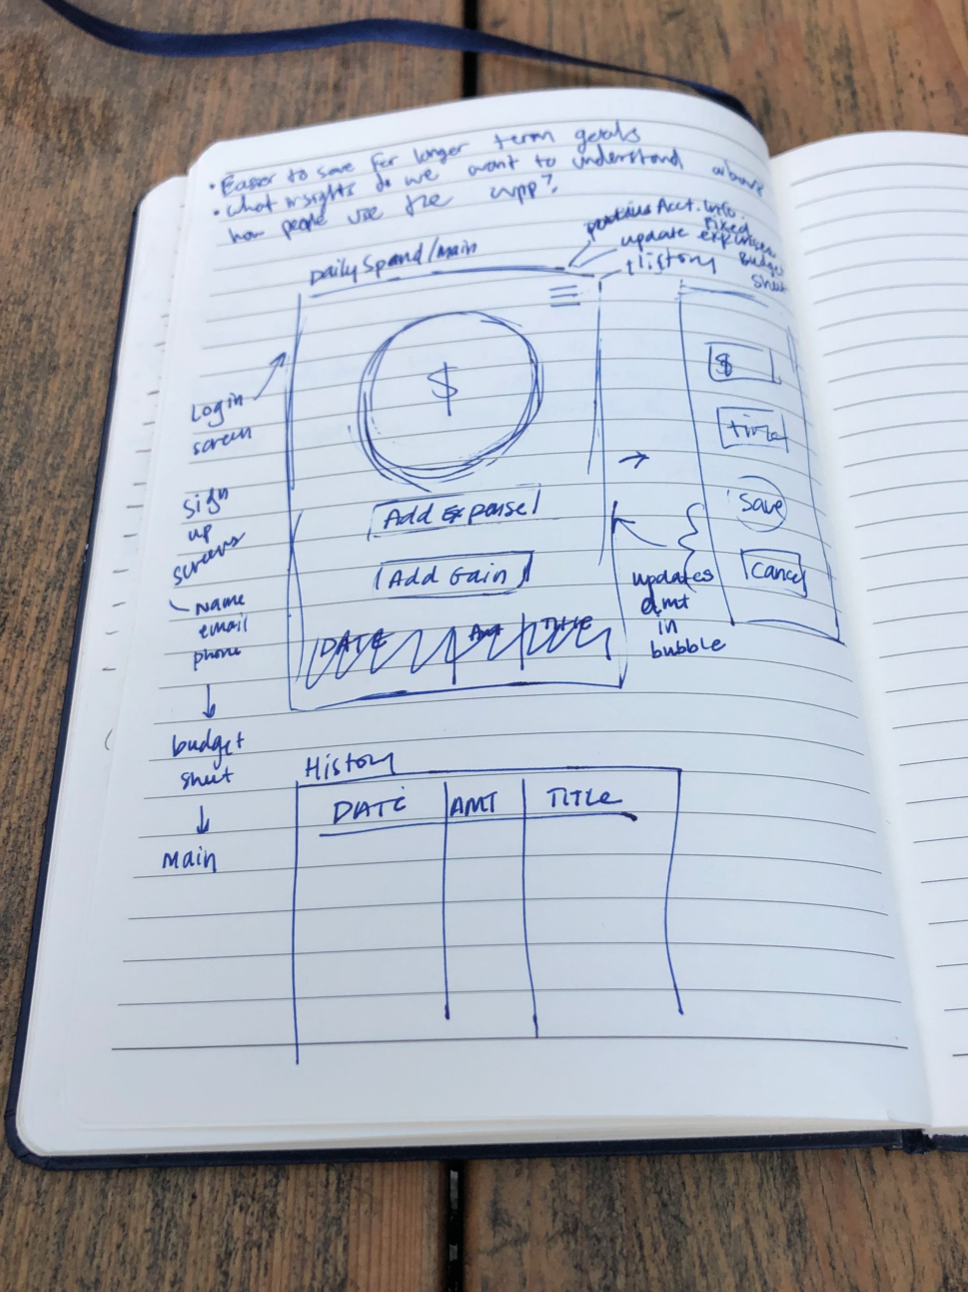 • Easier to save for longer term goals
• What insights do we want to understand about
how people use the app?
Acct. info.
update fixed expenses
Budget
sheet
History
Daily Spend/Main
$
Add Expense
Add Gain
DATE AMT TITLE
Login
screen
Sign
up
screens
Name
email
phone
budget
sheet
Main
$
title
Save
Cancel
updates
amt
in
bubble
History
DATE AMT TITLE